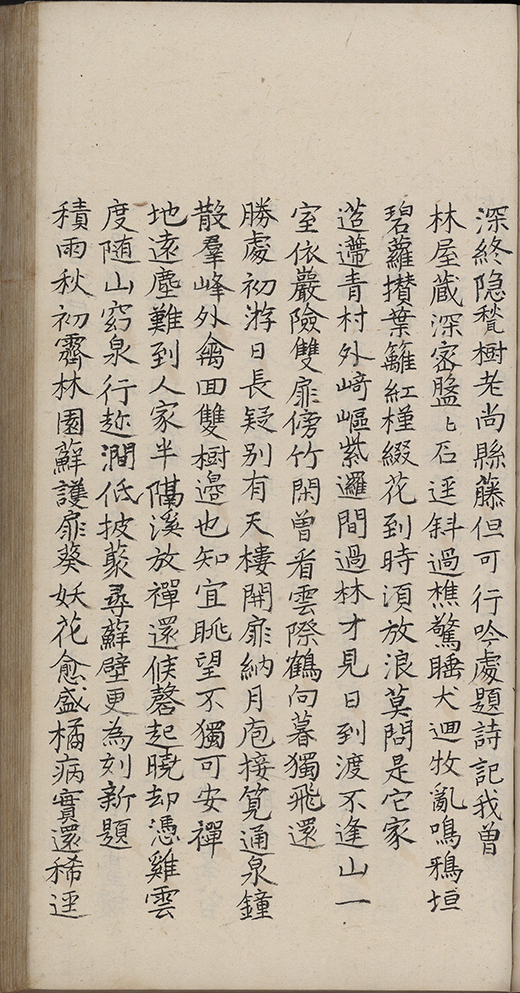 深終隐甃樹老尚縣藤但可行吟處題詩記我曾
林屋蔵深密盤〻石迳斜過樵驚睡犬迴牧亂鳴鴉垣
碧蘿攅葉籬紅槿綴花到時湏放浪莫問是它家
迢遰青村外﨑嶇紫邏間過林才見日到渡不逢山一
室依巖險雙扉傍竹閑曽看雲際鶴向暮獨飛還
勝處初游日長疑别有天棲開扉納月庖接筧通泉鐘
散羣峰外禽回雙樹邊也知宜眺望不獨可安禪
地遠塵難到人家半隔溪放禪還候磬起曉却憑雞雲
度随山窮泉行趂澗低披藂尋蘚壁更為刻新題
積雨秋初霽林園蘚護扉葵妖花愈盛橘病實還稀迳